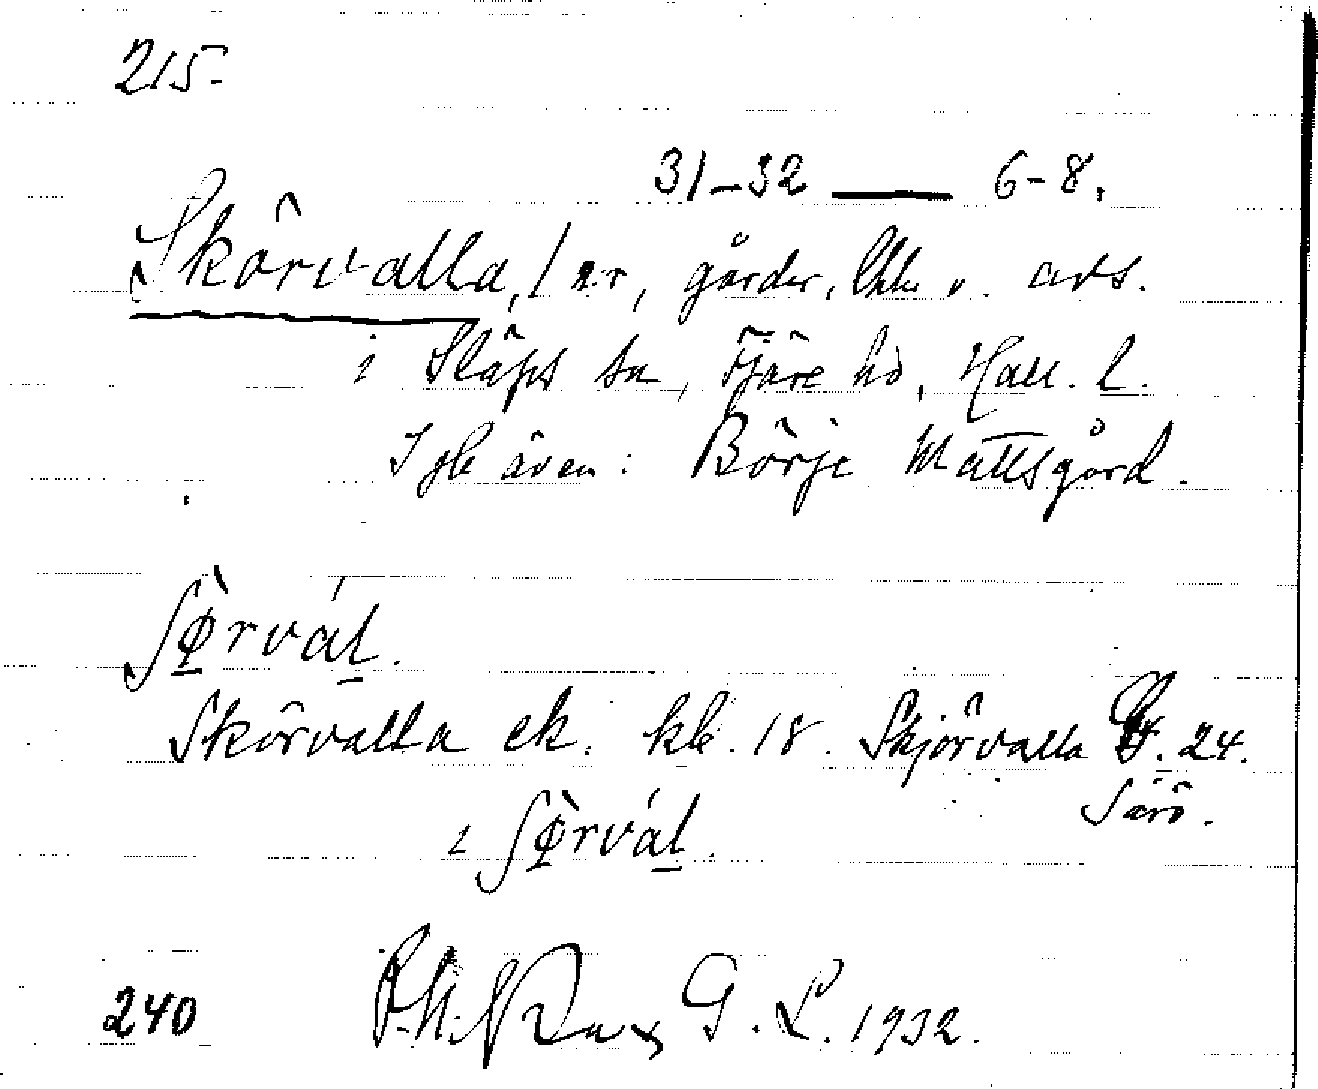 215.
31-32 — 6-8.
Skörvalla, 1 nr, gårdar, lht o. avs.
i Släps sn, Fjäre hd, Hall. l.
I jb även: Börje Mattsgård.
ʃφ̱̀rváḻ.
Skörvalla ek. kbl. 18. Skjörvalla 24.
Särö.
i ʃφ̱̀rváḻ.
240 G. L. 1932.